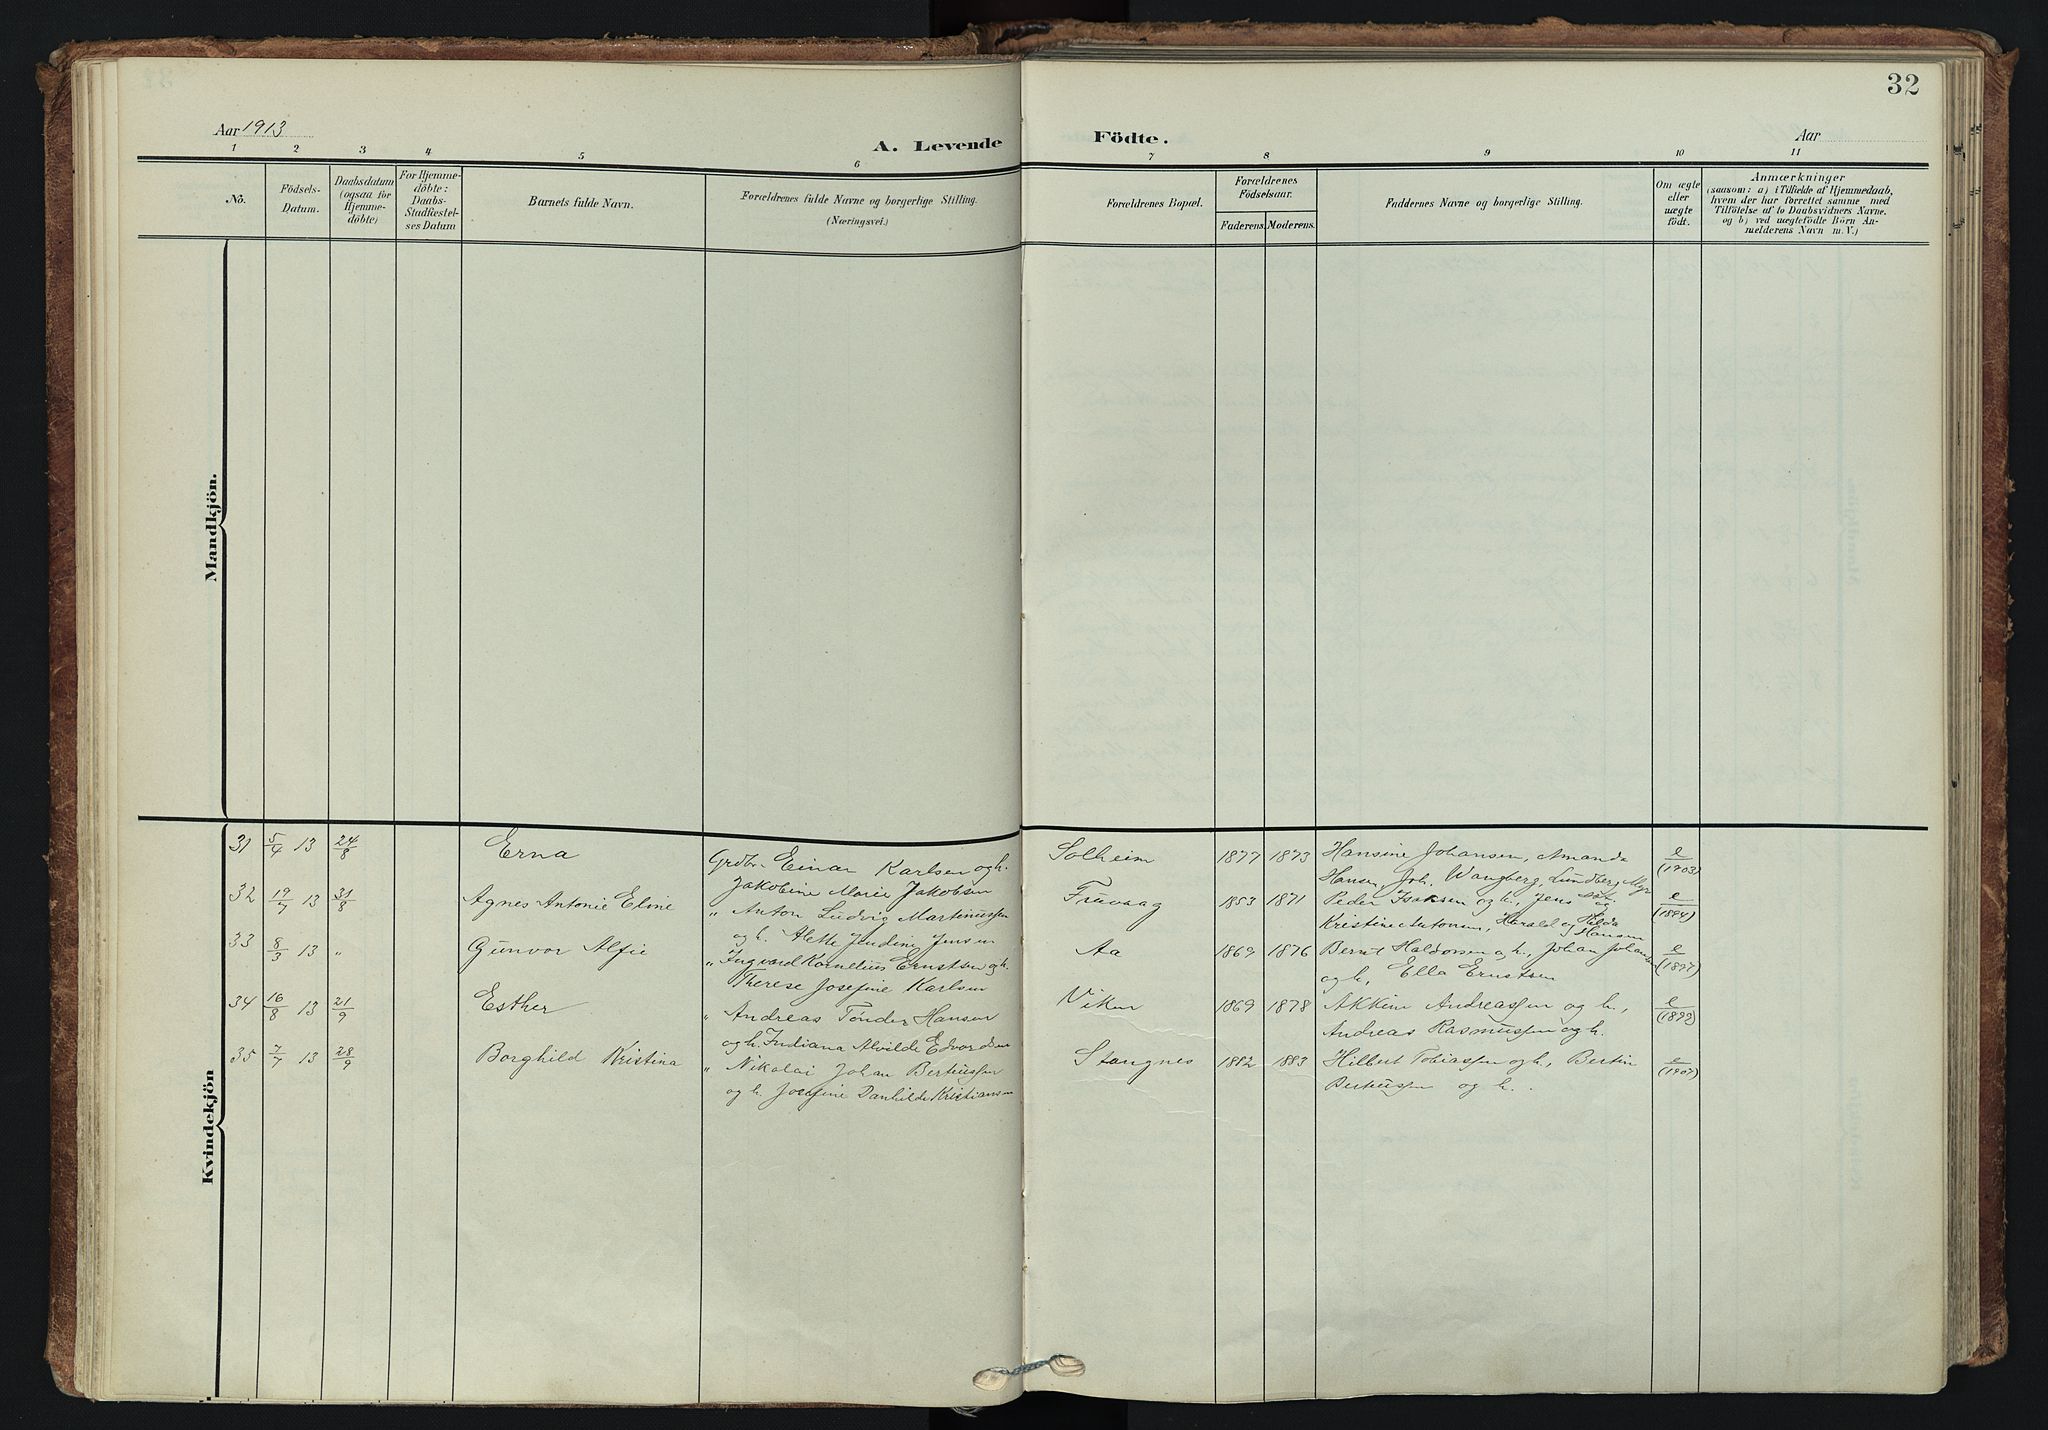 32
Aar 1913
A. Levende Födte.
Aar
1 2 3 4 5 6 7 8 9 10 11
No.
Födsels-
Datum.
Daabsdatum
(ogsaa for
Hjemme-
döbte)
For Hjemme-
döbte:
Daabs-
Stadfæstel-
ses Datum
Barnets fulde Navn.
Forældrenes fulde Navne og borgerlige Stilling.
(Næringsvei.)
Forældrenes Bopæl.
Forældrenes
Födselsaar.
Faderens. Moderens.
Faddernes Navne og borgerlige Stilling.
Om ægte
eller
uægte
födt.
Anmærkninger
(saasom: a) i Tilfælde af Hjemmedaab,
hvem der har forrettet samme med
Tilföielse af to Daabsvidners Navne.
og b) ved uægtefödte Börn An-
melderens Navn m. V.)
Mandkjön.
Kvindekjön
31 5/4 13 24/8 Erna Grdbr. Einar Karlsen og h. Solheim 1877 1873 Hansine Johansen, Amanda e/(1903)
Jakobine Marie Jakobsen Hansen, Joh. Wangberg, Lundberg Myr
32 19/7 13 31/8 Agnes Antonie Eline " Anton Ludvig Martinussen 1853 1871 Peder Isaksen og h., Jens og e/(1894)
og h. Alette Jensen Kristine Antonsen, Harald og Hilda Hansen
33 8/3 13 " Gunvor Alfie " Ingvard Kornelius Ernstsen og h. Aa 1869 1876 Bernt Haldorsen og h., Johan Johansen e/(1897)
Therese Josefine Karlsen og h., Ella Ernstsen
34 16/8 13 21/9 Esther " Andreas Tönder Hansen Viken 1869 1878 Andreassen og h., e/(1899)
og h. Indiana Alvilde Edvardsen Andreas Rasmussen og h.
35 7/7 13 28/9 Borghild Kristina " Nikolai Johan Bertiussen Stangnes 1882 1883 Hilbert Tobiassen og h., Bertin e/(1907)
og h. Josefine Danhilde Kristiansen Bertiussen og h.